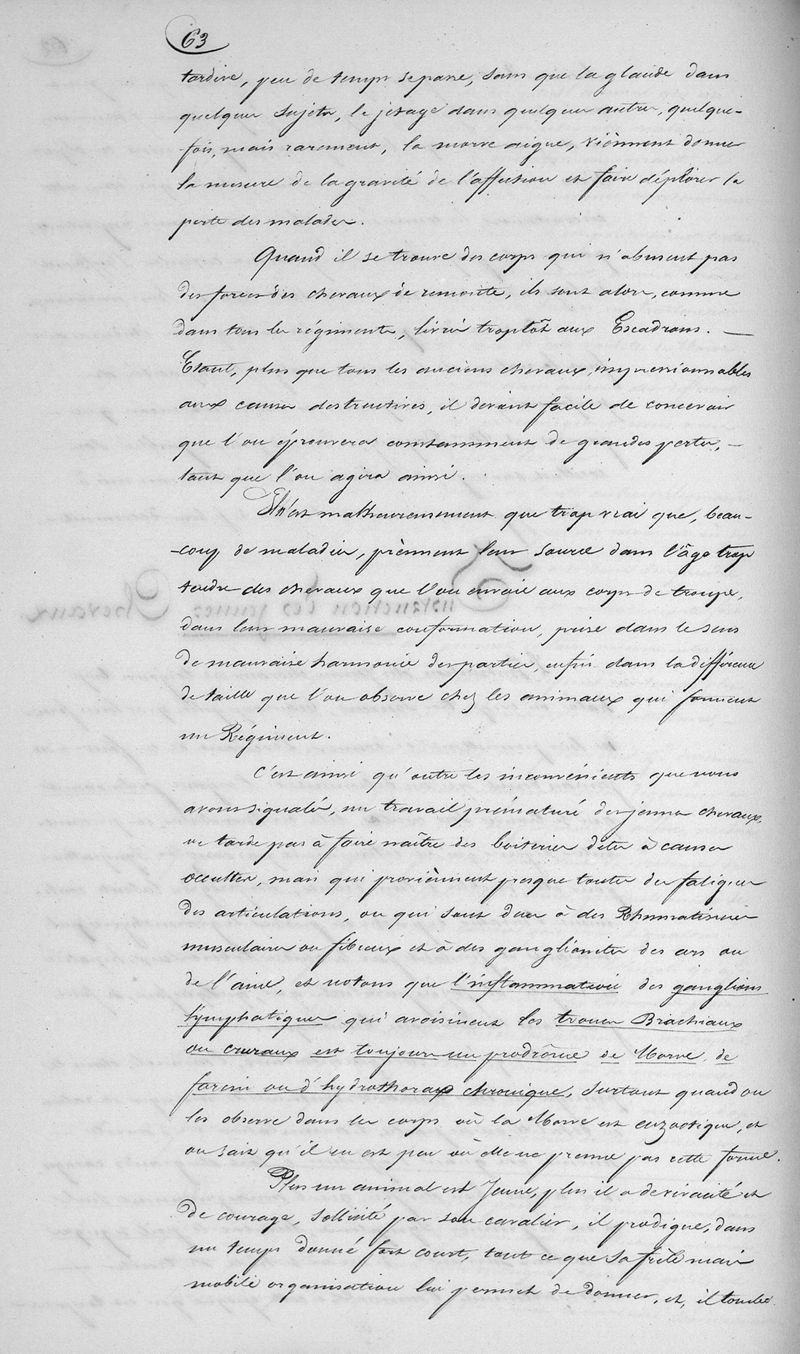 63
tardive, peu de temps se passe, sans que la glande dans
quelques sujets, le jetage dans quelques autres, quelque-
fois, mais rarement, la morve aigue, viènnent donner
la mesure de la gravité de l'affection et faire déplorer la
perte des malades.
Quand il se trouve des corps qui n'abusent pas
des forces des chevaux de remonte, ils sont alors, comme
dans tous les régiments, livrés trop tôt aux Escadrons. —
Etant, plus que tous les anciens chevaux, impressionnables
aux causes destructives, il devient facile de concevoir
que l'on éprouvera constamment de grandes pertes, —
tant que l'on agira ainsi.
Il n'est malheureusement que trop vrai que, beau-
-coup de maladies, prènnent leur source dans l'âge trop
tendre des chevaux que l'on envoie aux corps de troupe,
dans leur mauvaise conformation, prise dans le sens
de mauvaise harmonie des parties, enfin dans la différence
de taille que l'on observe chez les animaux qui forment
un Régiment.
C'est ainsi qu'outre les inconvénients que nous
avons signalés, un travail prématuré des jeunes chevaux,
ne tarde pas à faire naître des boiteries dites à causes
occultes, mais qui proviènnent presque toutes des fatigues
des articulations, ou qui sont dues à des Rhumatismes
musculaires ou fibreux et à des ganglionites des ars ou
de l'aine, et notons que l'inflammation des ganglions
lymphatiques qui avoisinent les troncs Brachiaux
ou cruraux est toujours un prodrôme de Morve, de
farcin ou d'hydrothorax chronique, surtout quand on
les observe dans les corps où la Morve est enzootique, et
on sait qu'il en est peu où elle ne prenne pas cette forme.
Plus un animal est Jeune, plus il a de vivacité et
de courage, sollicité par son cavalier, il prodigue, dans
un temps donné fort court, tout ce que sa frêle mais
mobile organisation lui permet de donner, et, il tombe